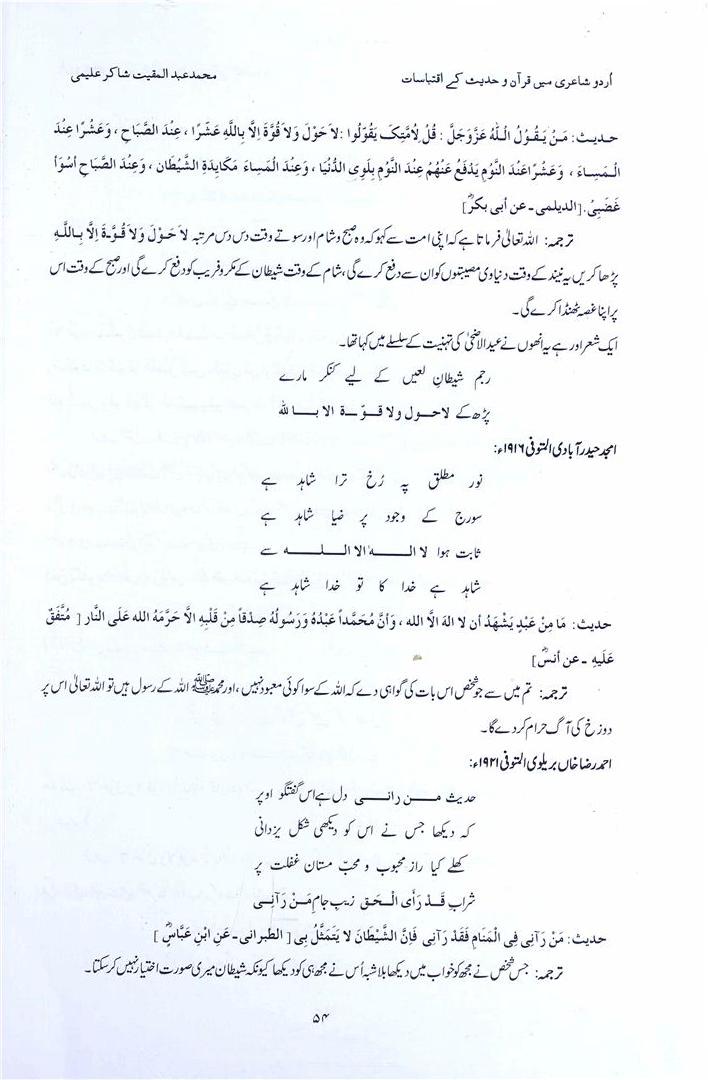 اُردو شاعری میں قرآن و حدیث کے اقتباسات
محمد عبد المقیت شاکر علیمی
حدیث: مَنْ یَقُوْلُ اللّٰهُ عَزَّوَجَلَّ : قُلْ لِاُمَّتِکَ یَقُوْلُوْا :لاَحَوْلَ وَلاَ قُوَّةَ اِلاَّ بِاللّٰهِ عَشْرًا ، عِنْدَ الصَّبَاحِ ، وَعَشْرًا عِنْدَ
الْمَسَاءَ ، وَعَشْرًا عَنْدَ النَّوْمِ یَدْفَعُ عَنْهُمْ عِنْدَ النَّوْمِ بَلْوِی الدُّنْیَا ، وَعِنْدَ الْمَسَاءَ مَکَایِدَةِ الشَّیْطَانِ ، وَعِنْدَ الصَّبَاحِ اَسْوَأ
غَضَبِیْ.[الدیلمی۔ عن أبی بکرؓ]
ترجمہ: اللہ تعالیٰ فرماتا ہے کہ اپنی امت سے کہو کہ وہ صبح و شام اور سوتے وقت دس دس مرتبہ لاَ حَوْلَ وَلاَ قُوَّةَ اِلاَّ بِاللّٰهِ
پڑھا کریں یہ نیند کے وقت دنیاوی مصیبتوں کو ان سے دفع کرے گی، شام کے وقت شیطان کے مکر و فریب کو دفع کرے گی اور صبح کے وقت اس
پر اپنا غصہ ٹھنڈا کرے گی۔
ایک شعر اور ہے یہ انھوں نے عید الاضحیٰ کی تہنیت کے سلسلے میں کہا تھا۔
رجم شیطانِ لعیں کے لیے کنکر مارے
پڑھ کے لاحول ولا قوّة الا باللہ
امجد حیدرآبادی المتوفی ۱۹۱۶ء:
نور مطلق پہ رُخ ترا شاہد ہے
سورج کے وجود پر ضیا شاہد ہے
ثابت ہوا لا الٰہ الا اللہ سے
شاہد ہے خدا کا تو خدا شاہد ہے
حدیث: مَا مِنْ عَبْدٍ یَشْهَدُ أن لا اله الَّا الله ، وَأنَّ مُحَمَّداً عَبْدُهُ وَرَسُولُه صِدْقاً مِنْ قَلْبِهِ الَّا حَرَّمَهُ الله عَلَی النَّار [ مُتَّفَقٌ
عَلَیهِ ۔ عن أنسؓ]
ترجمہ: تم میں سے جو شخص اس بات کی گواہی دے کہ اللہ کے سوا کوئی معبود نہیں، اور محمدﷺ اللہ کے رسول ہیں تو اللہ تعالیٰ اس پر
دوزخ کی آگ حرام کردے گا۔
احمد رضا خاں بریلوی المتوفی ۱۹۲۱ء:
حدیث من رانی دل ہے اس گفتگو اوپر
کہ دیکھا جس نے اس کو دیکھی شکل یزدانی
کھلے کیا راز محبوب و محبّ مستان غفلت پر
شرابِ قَدْ رَأی الْحَق زیبِ جامِ مَنْ رَآنِی
حدیث: مَنْ رَآنِی فِی الْمَنَامِ فَقَدْ رَآنِی فَإِنَّ الشَّیْطَانَ لاَ یَتَمَثَّلُ بِی [ الطبرانی۔ عَنِ ابْنِ عَبَّاسٍؓ ]
ترجمہ: جس شخص نے مجھ کو خواب میں دیکھا بلا شبہ اُس نے مجھ ہی کو دیکھا کیونکہ شیطان میری صورت اختیار نہیں کرسکتا۔
۵۴